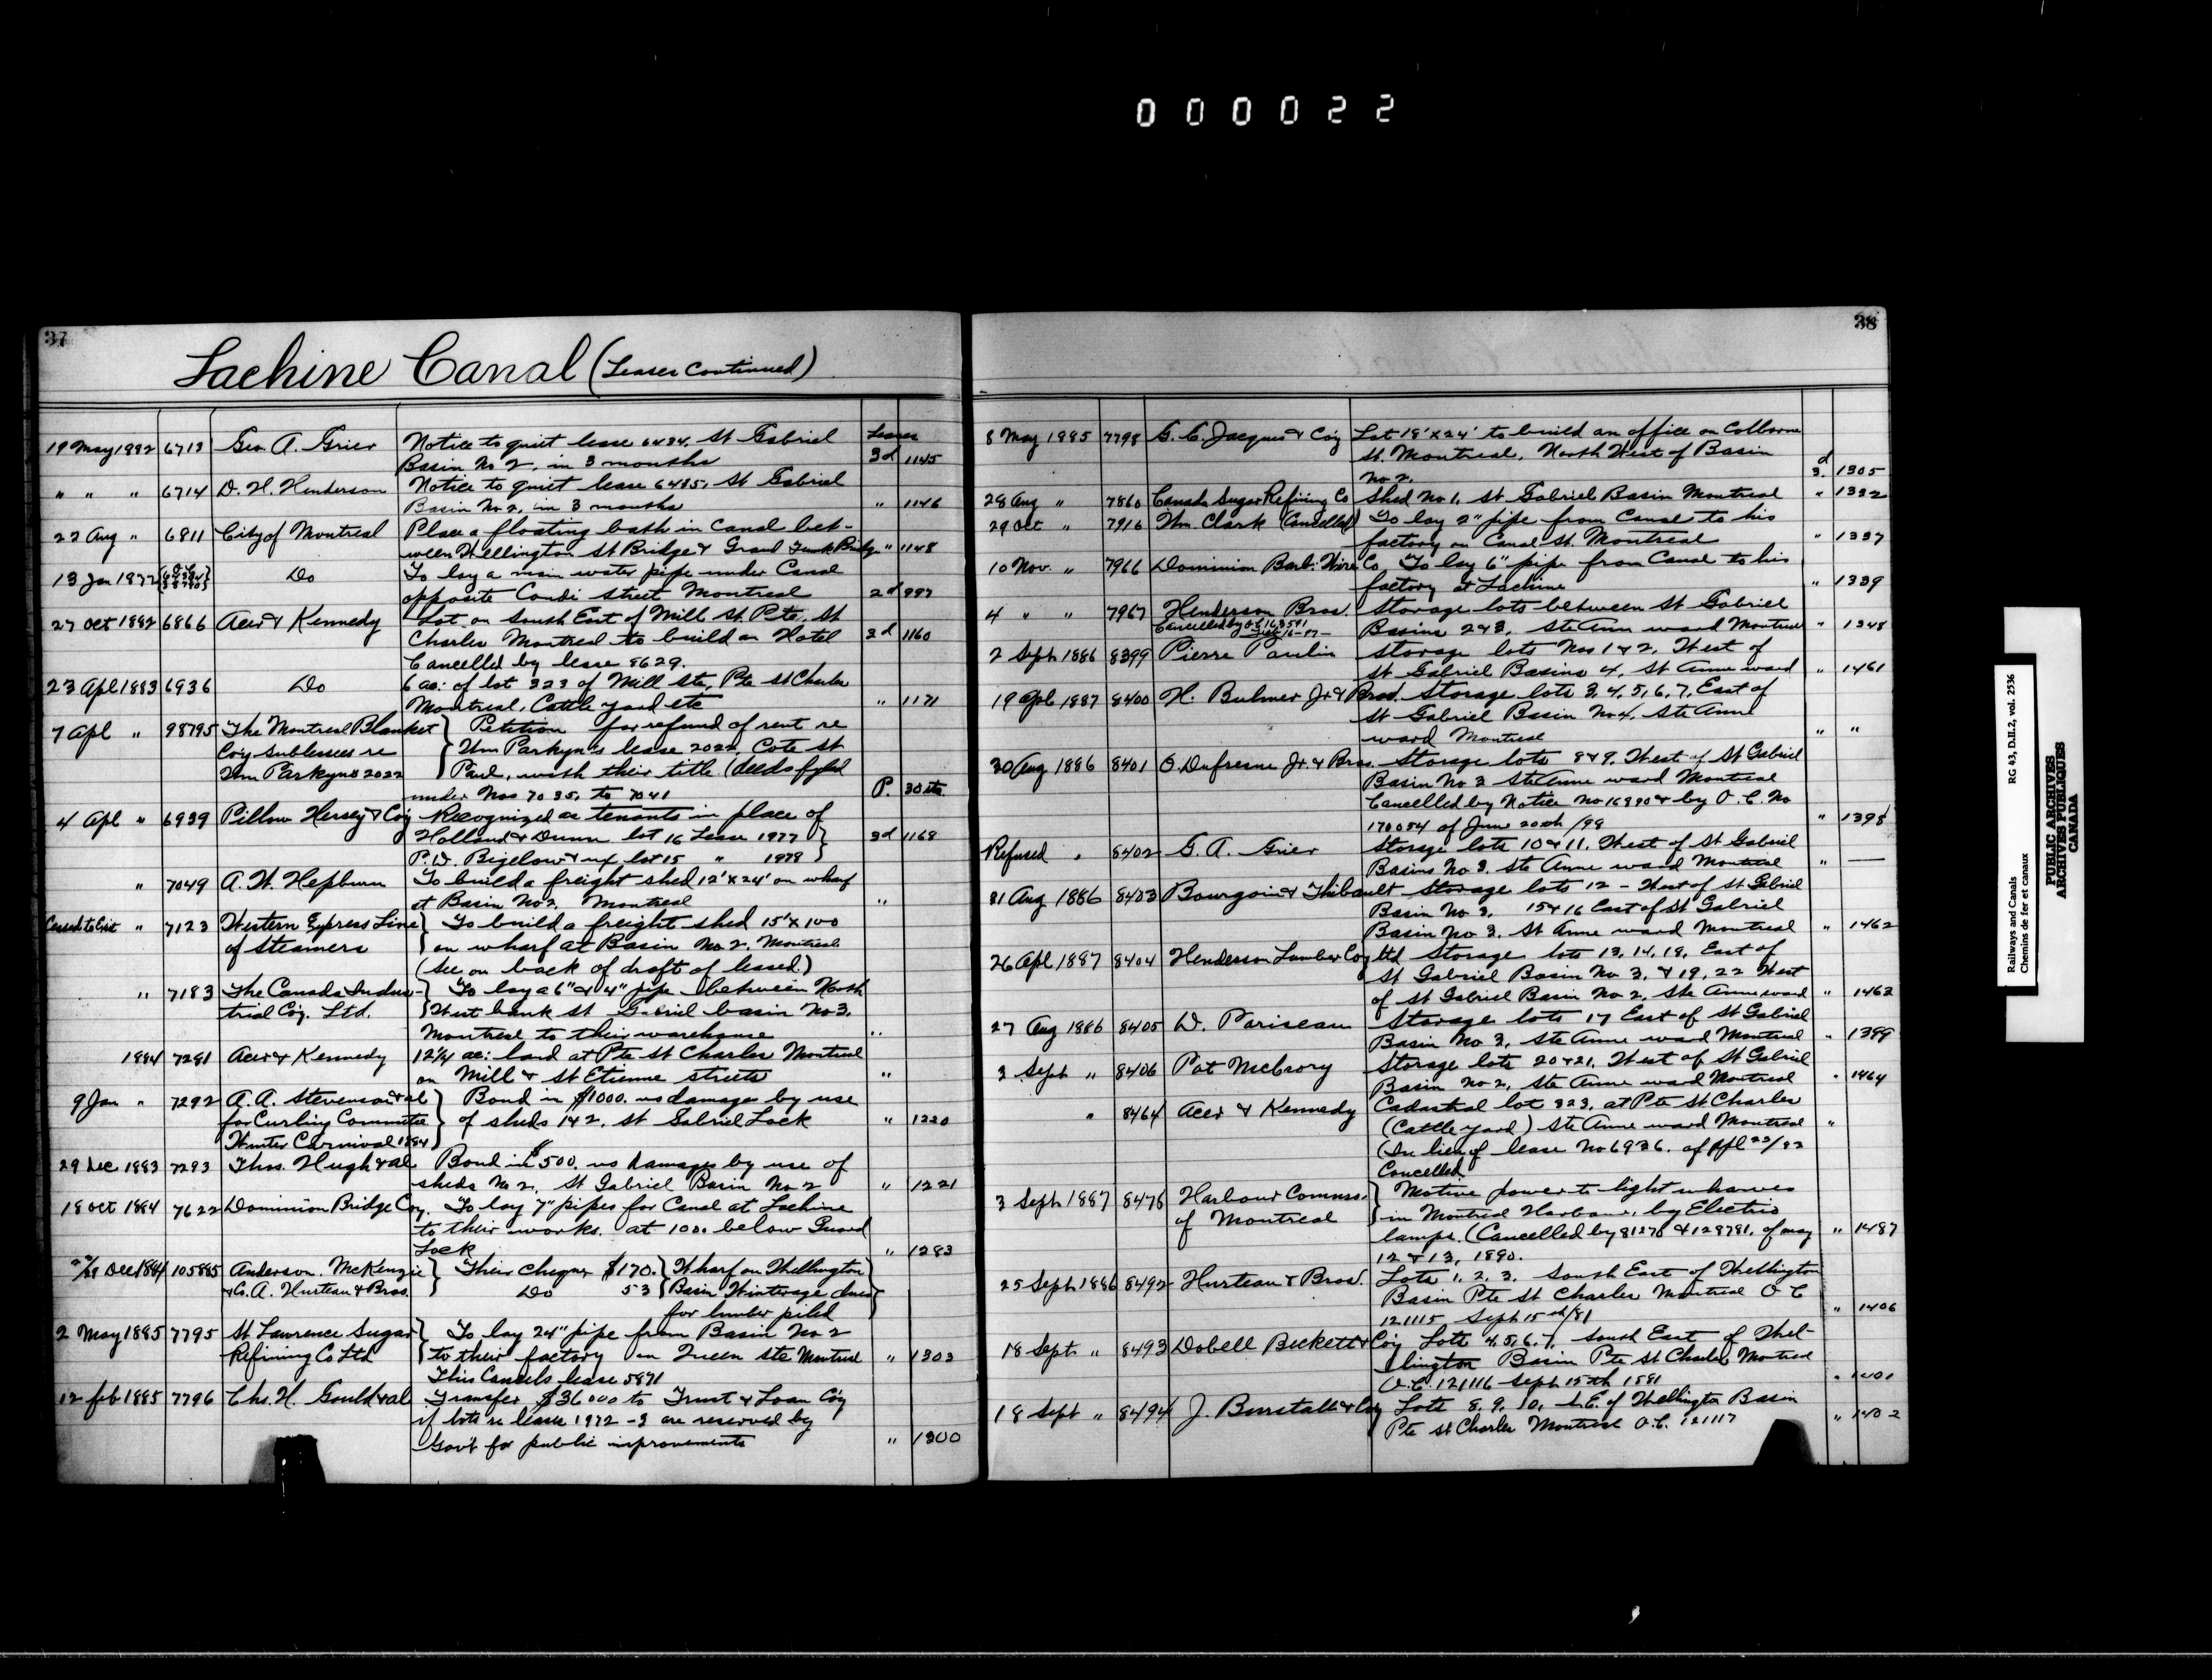 000022
37
Lachine Canal (Leases Continued)
19 May 1882 6713 Geo. A. Grier Notice to quiet lease 6484, St Gabriel Leases
Basin No 2, in 3 months 3d 1145
" " " 6714 D. H. Henderson Notice to quiet lease 6485, St Gabriel
Basin No 2, in 3 months " 1146
22 Aug " 6811 City of Montreal Place a floating bath in Canal bet-
ween Wellington St Bridge & Grand Trunk Bridge " 1148
13 Jan 1872 Do To lay a main water pipe under Canal
opposite Condi street Montreal 2d 997
27 Oct 1882 6866 Acer & Kennedy Lot on South East of Mill St. Pte. St
Charles Montreal to build an Hotel 3d 1160
Cancelled by lease 8629.
23 Apl 1883 6936 Do 6 ac: of lot 323 of Mill Ste, Pte St Charles
Montreal, Cattle yard etc " 1171
7 Apl " 98795 The Montreal Blanket } Petition for refund of rent re
Coy Sublessees re Wm Parkyn's lease 2022, Cote St
Wm Parkyns 2022 Paul, with their title (deeds fyled
under Nos 7035, to 7041 P. 30 etc
4 Apl " 6939 Pillow Hersey & Coy Recognized as tenants in place of
Holland & Dunn lot 16 Lease 1977 } 3d 1168
P. D. Bigelow & ux lot 15 " 1978 }
" 7049 A. W. Hepburn To build a freight shed 12' x 24' on wharf
at Basin No 2, Montreal "
Ceased to Exist " 7123 Western Express Line } To build a freight shed 15' x 100
of Steamers on wharf at Basin No 2, Montreal
(See on back of draft of leased.)
" 7183 The Canada Indus- } To lay a 6" & 4" pipe between North
trial Coy. Ltd. West bank St Gabriel basin No 3,
Montreal to their warehouse "
1884 7281 Acer & Kennedy 12¼ ac: land at Pte St Charles Montreal
on Mill & St Etienne streets "
9 Jan " 7292 A. A. Stevenson & al } Bond in $1000. no damages by use
for Curling Committee of sheds 1 & 2, St Gabriel Lock " 1220
Winter Carnival 1884
29 Dec 1883 7293 Thos. Hugh & al Bond in $500. no damages by use of
sheds No 2, St Gabriel Basin No 2 " 1221
18 Oct 1884 7622 Dominion Bridge Coy. To lay 7" pipes for Canal at Lachine
to their works. at 100. below Guard
Lock " 1283
2/29 Dec 1884 105885 Anderson. McKenzie } Their cheque $170. { Wharf on Wellington
& G. A. Hurteau & Bros. Do 53 { Basin Winterage dues
for lumber piled
2 May 1885 7795 St Lawrence Sugar } To lay 24" pipe from Basin No 2
Refining Co Ltd to their factory on Queen Ste Montreal " 1303
This Cancels lease 5871
12 feb 1885 7796 Chs. H. Gould & al Transfer $36000 to Trust & Loan Coy
if lots re lease 1972-3 are reserved by
Gov't for public improvements " 1300
38
8 May 1885 7798 G. C. Jacques & Coy Lot 18' x 24' to build an office on Colborne
St. Montreal, North West of Basin
No 2. 3.d 1305
28 Aug " 7860 Canada Sugar Refining Co Shed No 1, St Gabriel Basin Montreal " 1332
29 Oct " 7916 Wm. Clark (Cancelled) To lay 2" pipe from Canal to his
factory on Canal St. Montreal " 1337
10 Nov. " 7966 Dominion Barb. Wire Co To lay 6" pipe from Canal to his
factory at Lachine " 1339
4 " " 7967 Henderson Bros. Storage lots between St Gabriel
Cancelled by Basins 2 & 3, Ste Ann ward Montreal " 1348
2 Sept 1886 8399 Pierre Paulin Storage lots Nos 1 & 2, West of
St Gabriel Basins 4, St Anne ward " 1461
19 Apl 1887 8400 H. Bulmer Jr & Bros. Storage lots 3, 4, 5, 6, 7, East of
St Gabriel Basin No 4, Ste Anne
ward Montreal " "
30 Aug 1886 8401 O. Dufresne Jr. & Bros. Storage lots 8 & 9, West of St Gabriel
Basin No 3 Ste Anne ward Montreal
Cancelled by Notice No 16990 & by O.C. No
170054 of June 20th /98 " 1398
Refused " 8402 G. A. Grier Storage lots 10 & 11, West of St Gabriel
Basins No 3. Ste Anne ward Montreal " —
31 Aug 1886 8403 Bourgoin & Thibault Storage lots 12 - West of St Gabriel
Basin No 3, 15 & 16 East of St Gabriel
Basin No 3, St Anne ward Montreal " 1462
26 Apl 1887 8404 Henderson Lumber Coy Ltd Storage lots 13, 14, 18, East of
St Gabriel Basin No 3, & 19, 22 West
of St Gabriel Basin No 2, Ste Anne ward " 1463
27 Aug 1886 8405 D. Pariseau Storage lots 17 East of St Gabriel
Basin No 3, Ste Anne ward Montreal " 1399
3 Sept " 8406 Pat McCrory Storage lots 20 & 21, West of St Gabriel
Basin No 2, Ste Anne ward Montreal " 1464
" 8464 Acer & Kennedy Cadastral lot 323, at Pte St Charles
(Cattle yard) Ste Anne ward Montreal "
(In lieu of lease No 6936. of Apl 23/83
Cancelled
3 Sept 1887 8476 Harbour Commrs. } Motive power to light wharves
of Montreal in Montreal Harbour, by Electric
lamps. (Cancelled by 81276 & 128781, of may " 1487
12 & 13, 1890.
25 Sept 1886 8492 Hurteau & Bros. Lots 1, 2, 3, South East of Wellington
Basin Pte St Charles Montreal O C
121115 Sept 15th/81 " 1406
18 Sept " 8493 Dobell Beckett & Coy Lots 4, 5, 6, 7, South East of Wel-
lington Basin Pte St Charles Montreal
O.C. 121116 Sept 15th 1881 " 1401
18 Sept " 8494 J. Burstall & Coy Lots 8, 9, 10, S.E. of Wellington Basin
Pte St Charles Montreal O.C. 121117 " 1402
Railways and Canals RG 43, D.II.2, vol. 2536
Chemins de fer et canaux
PUBLIC ARCHIVES
ARCHIVES PUBLIQUES
CANADA